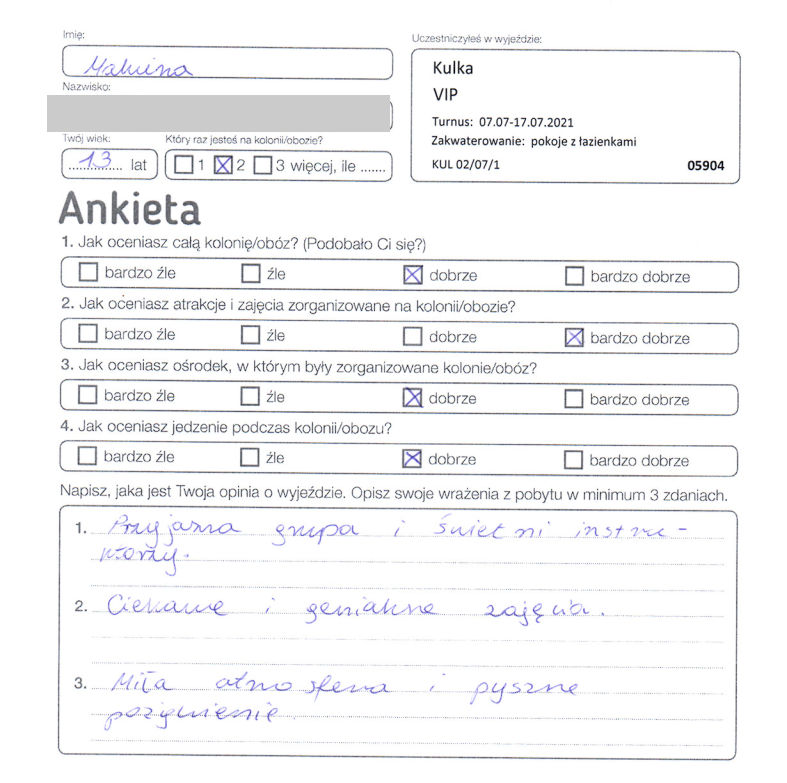 Imię:
Malwina
Nazwisko:
Twój wiek:
13 lat
Który raz jesteś na kolonii/obozie?
1 2 3 więcej, ile .......
Uczestniczyłeś w wyjeździe:
Kulka
VIP
Turnus: 07.07-17.07.2021
Zakwaterowanie: pokoje z łazienkami
KUL 02/07/1 05904
Ankieta
1. Jak oceniasz całą kolonię/obóz? (Podobało Ci się?)
bardzo źle źle dobrze bardzo dobrze
2. Jak oceniasz atrakcje i zajęcia zorganizowane na kolonii/obozie?
bardzo źle źle dobrze bardzo dobrze
3. Jak oceniasz ośrodek, w którym były zorganizowane kolonie/obóz?
bardzo źle źle dobrze bardzo dobrze
4. Jak oceniasz jedzenie podczas kolonii/obozu?
bardzo źle źle dobrze bardzo dobrze
Napisz, jaka jest Twoja opinia o wyjeździe. Opisz swoje wrażenia z pobytu w minimum 3 zdaniach.
1. Przyjazna grupa i świetni instru-
ktorzy.
2. Ciekawe i genialne zajęcia.
3. Miła atmosfera i pyszne
pożywienie.